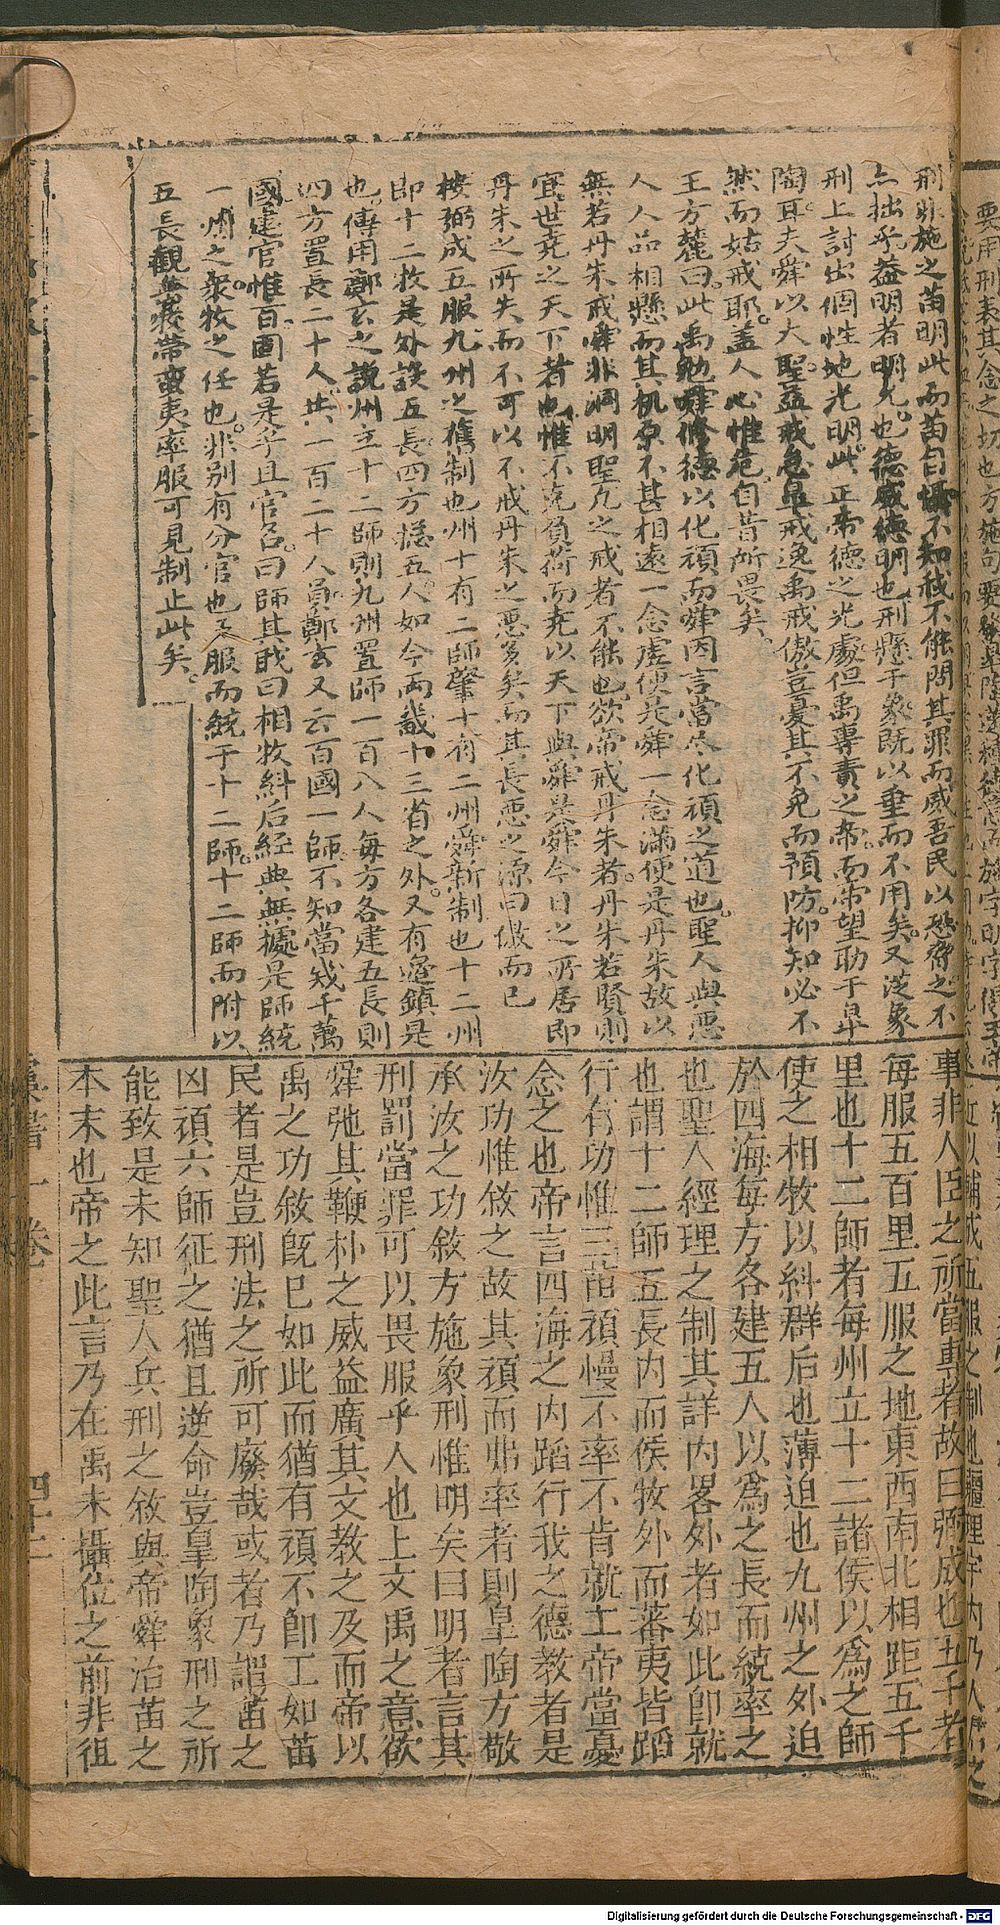 刑非施之苗明此而苗自懾不知我不能問其罪而威吾民以恐脅之不
亦拙乎蓋明者明允也德威德明也刑懸于象既以垂而不用矣又從象
刑上討出個性地光明此正帝德之光處但禹專責之帝而帝望助于皋
陶耳夫舜以大聖益戒怠皐戒逸禹戒傲豈憂其不免而預防抑知必不
然而姑戒耶蓋人心惟危自昔所畏矣
王方麓曰此禹勉舜修德以化頑而舜因言當久化頑之道也聖人與惡
人人品相懸而其机原不甚相遠一念虛便是舜一念滿便是丹朱故以
無若丹朱戒舜非洞明聖凡之戒者不能也欲帝戒丹朱者丹朱若賢則
宜世堯之天下者也惟不克負荷而堯以天下與舜是舜今日之所居即
丹朱之所失而不可以不戒丹朱之惡多矣而其長惡之源曰傲而已
按弼成五服九州之舊制也州十有二師肇十有二州舜新制也十二州
即十二牧是外設五長四方總五人如今兩畿十三省之外又有邊鎮是
也傳用鄭玄之說州立十二師則九州置師一百八人每方各建五長則
四方置長二十人共一百二十人員鄭玄又云百國一師不知當幾千萬
國建官惟百國若是乎且官名曰師其戢曰相牧糾后經典無據是師統
一州之衆牧之任也非別有分官也五服而統于十二師十二師而附以
五長觀冀袟帶蠻夷率服可見制止此矣
事非人臣之所當專者故曰弼成也五千者
每服五百里五服之地東西南北相距五千
里也十二師者每州立十二諸侯以爲之師
使之相牧以糾群后也薄迫也九州之外迫
於四海每方各建五人以爲之長而統率之
也聖人經理之制其詳內畧外者如此卽就
也謂十二師五長內而侯牧外而蕃夷皆蹈
行有功惟三苗頑慢不率不肯就工帝當憂
念之也帝言四海之內蹈行我之德教者是
汝功惟敘之故其頑而弗率者則皐陶方敬
承汝之功敘方施象刑惟明矣曰明者言其
刑罰當罪可以畏服乎人也上文禹之意欲
舜弛其鞭朴之威益廣其文教之及而帝以
禹之功敘旣已如此而猶有頑不卽工如苗
民者是豈刑法之所可廢哉或者乃謂苗之
凶頑六師征之猶且逆命豈皐陶象刑之所
能致是未知聖人兵刑之敘與帝舜治苗之
本末也帝之此言乃在禹未攝位之前非徂
四十二
Digitalisierung gefördert durch die Deutsche Forschungsgemeinschaft - DFG